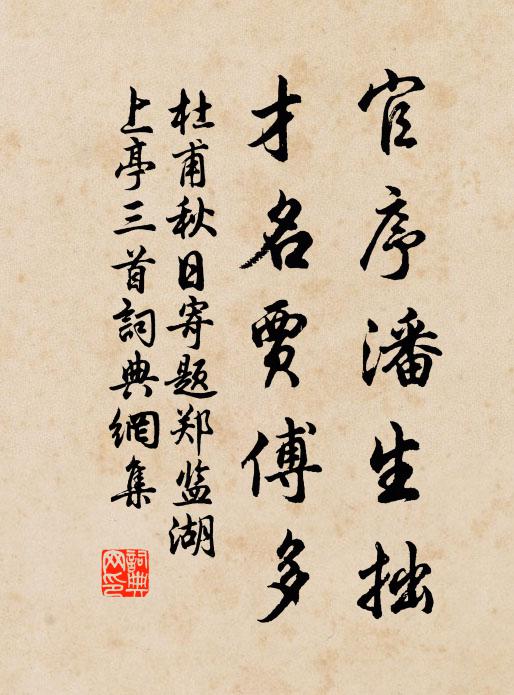 官序潘生拙
才名贾傅多
杜甫秋日寄题郑监湖
上亭三首詞典網集
詞典网印